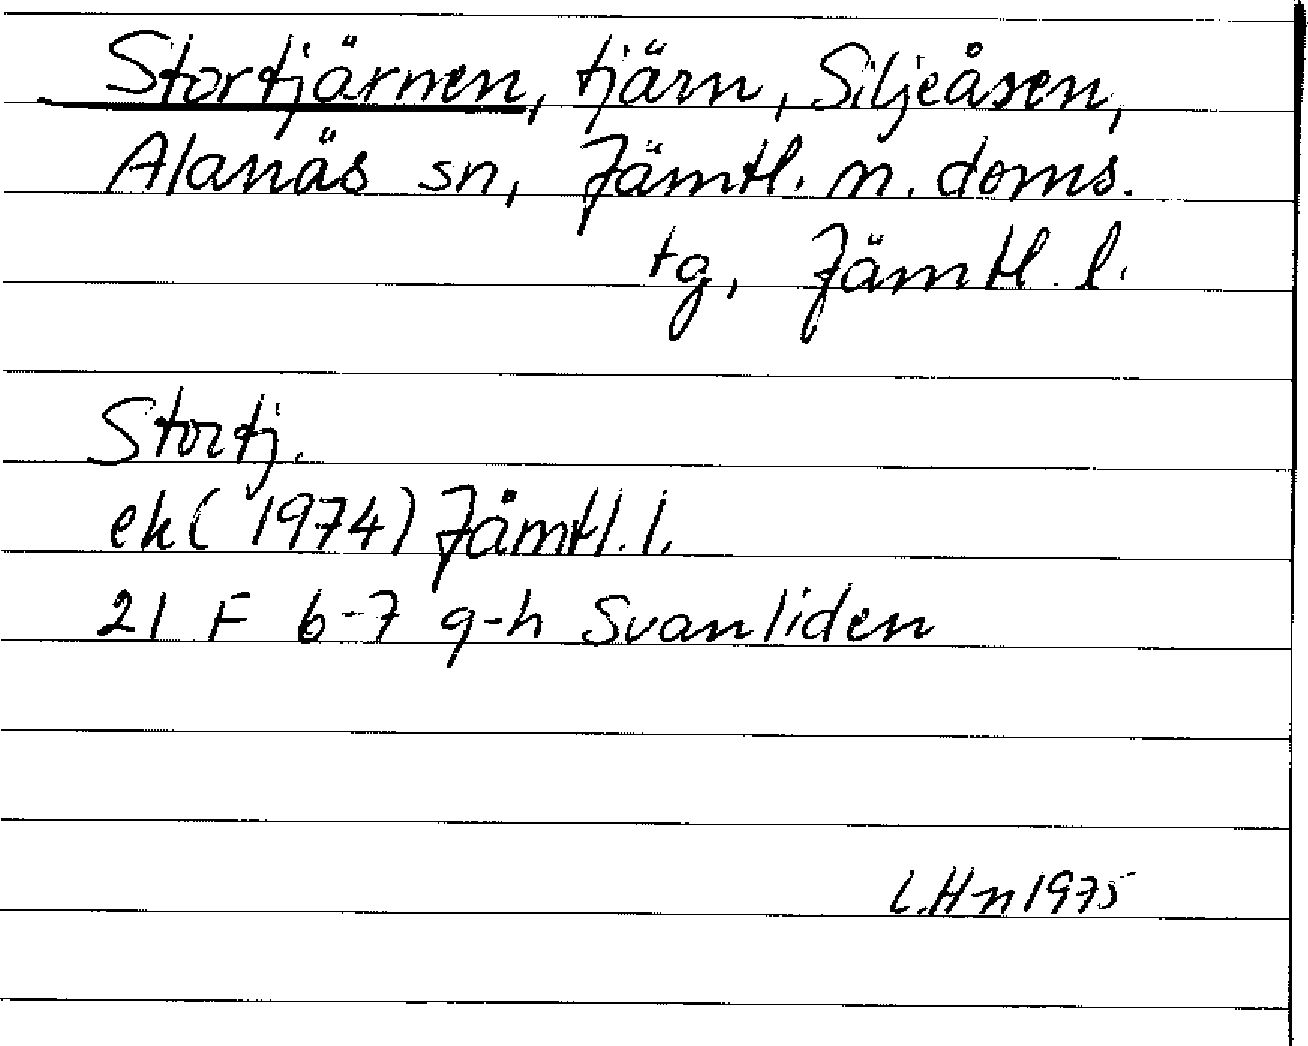 Stortjärnen, tjärn, Siljeåsen,
Alanäs sn, Jämtl. n. doms.
tg, Jämtl. l.
Stortj.
ek (1974) Jämtl. l.
21 F 6-7 g-h Svanliden
L.Hn 1975